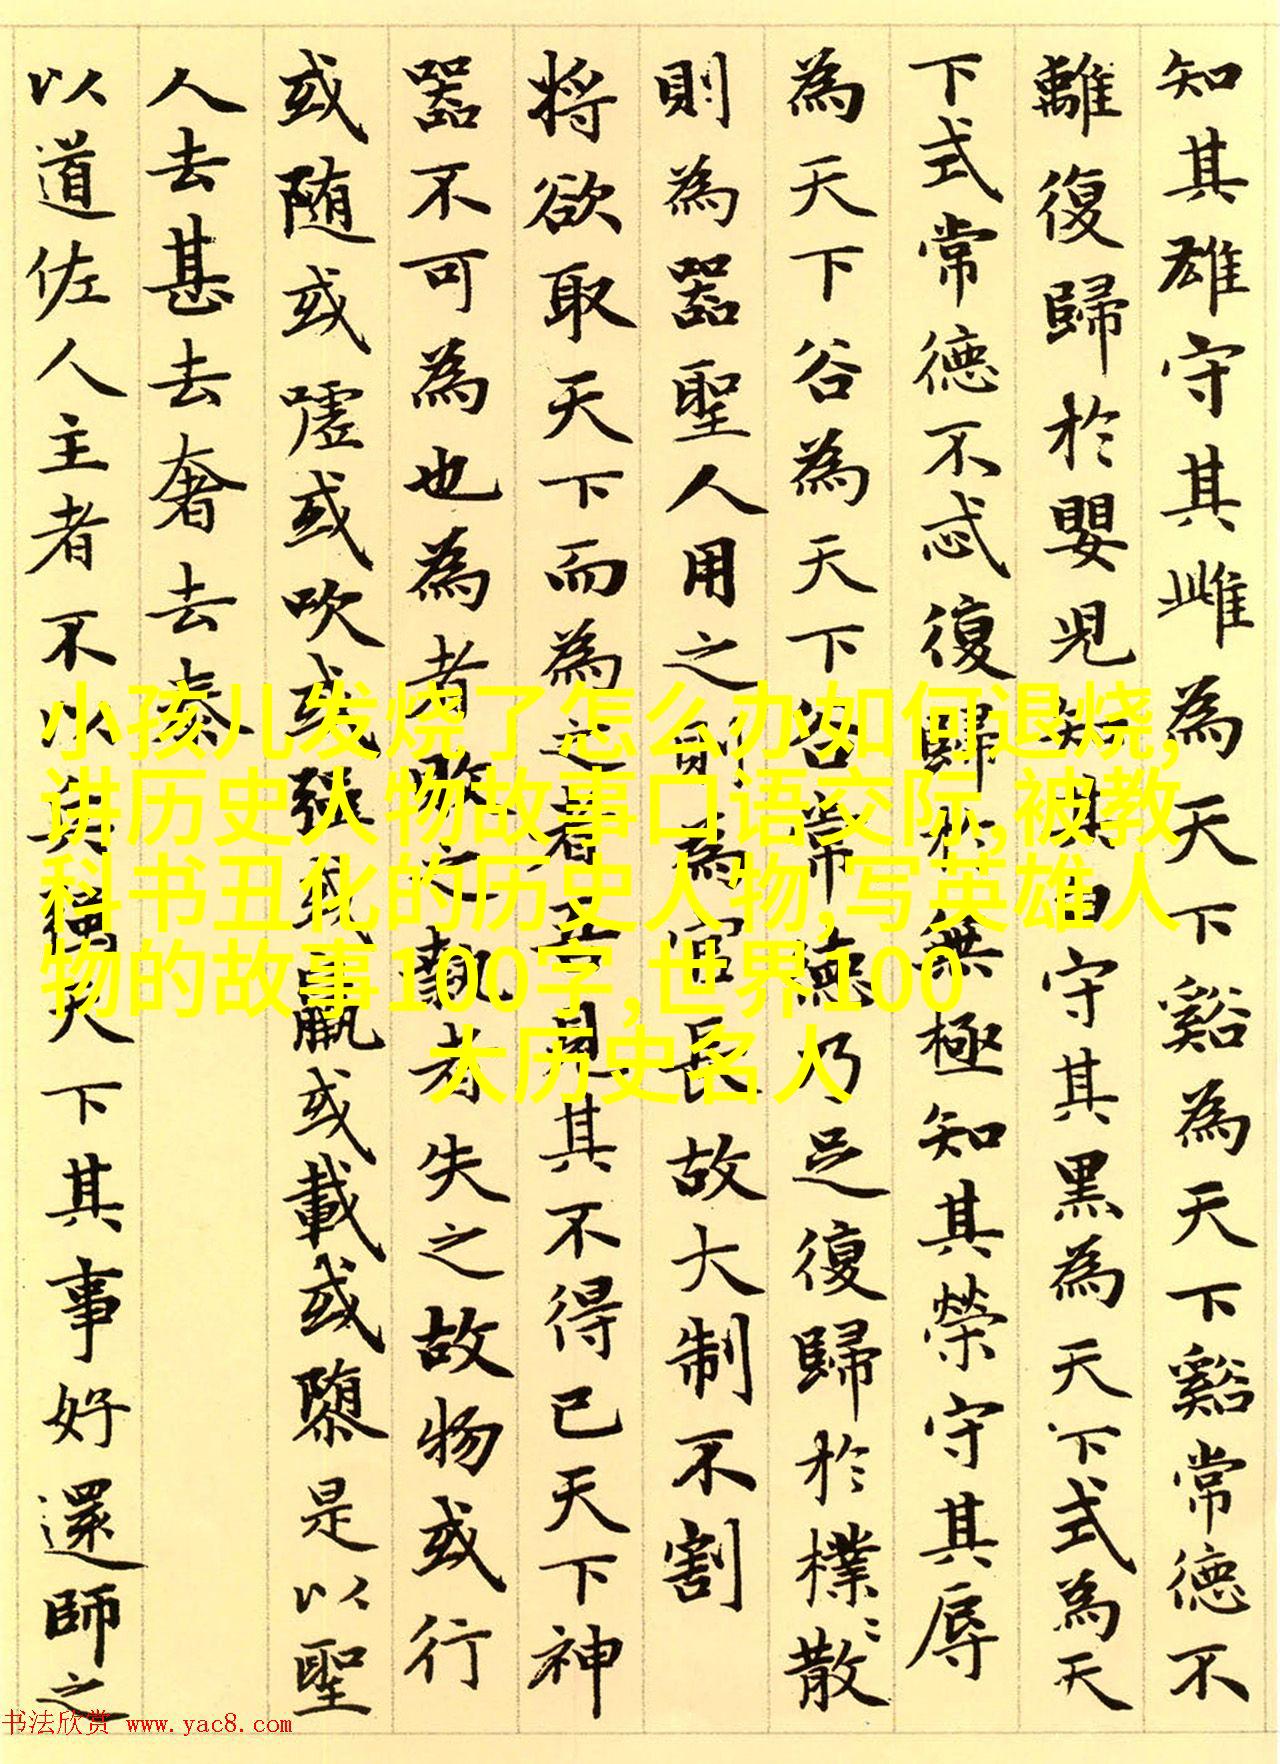 知其雄守其雌為天下谿為天下谿常德不
離復歸於嬰兒知其白守其黑為天下式為天
下式常德不忒復歸於無極知其榮守其辱
為天下谷為天下谷常德乃足復歸於樸〻散
則為器聖人用之則為官長故大制不割
将欲取天下而為之者吾見其不得已天下神
器不可為也為者敗之執者失之故物或行
或随或嘘或吹或强或羸或載或隳是以聖
人去甚去奢去泰
以道佐人主者不以兵强天下其事好還師之
小孩儿发烧了怎么办如何退烧,
讲历史人物故事口语交际,被教
科书丑化的历史人物,写英雄人
物的故事100字,世界100
大历史名人
书法欣赏 www.yac8.com